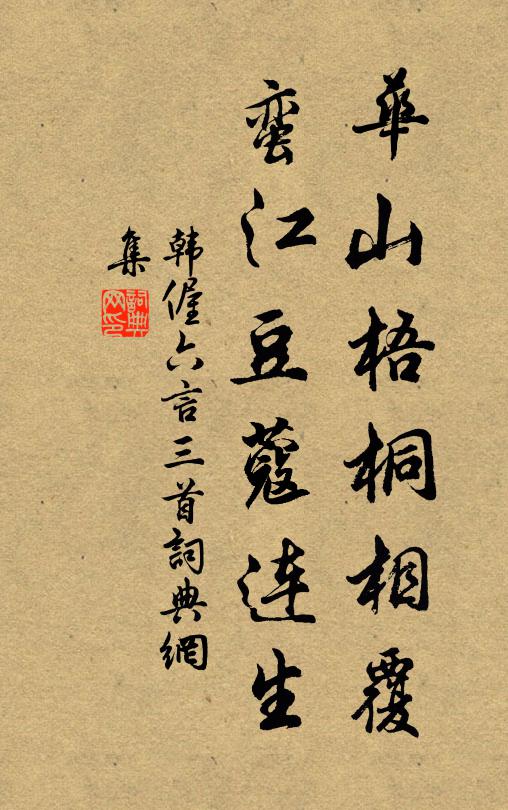 華山梧桐相覆
蛮江豆蔻連生
韩偓六言三首詞典網
集
詞典
网印